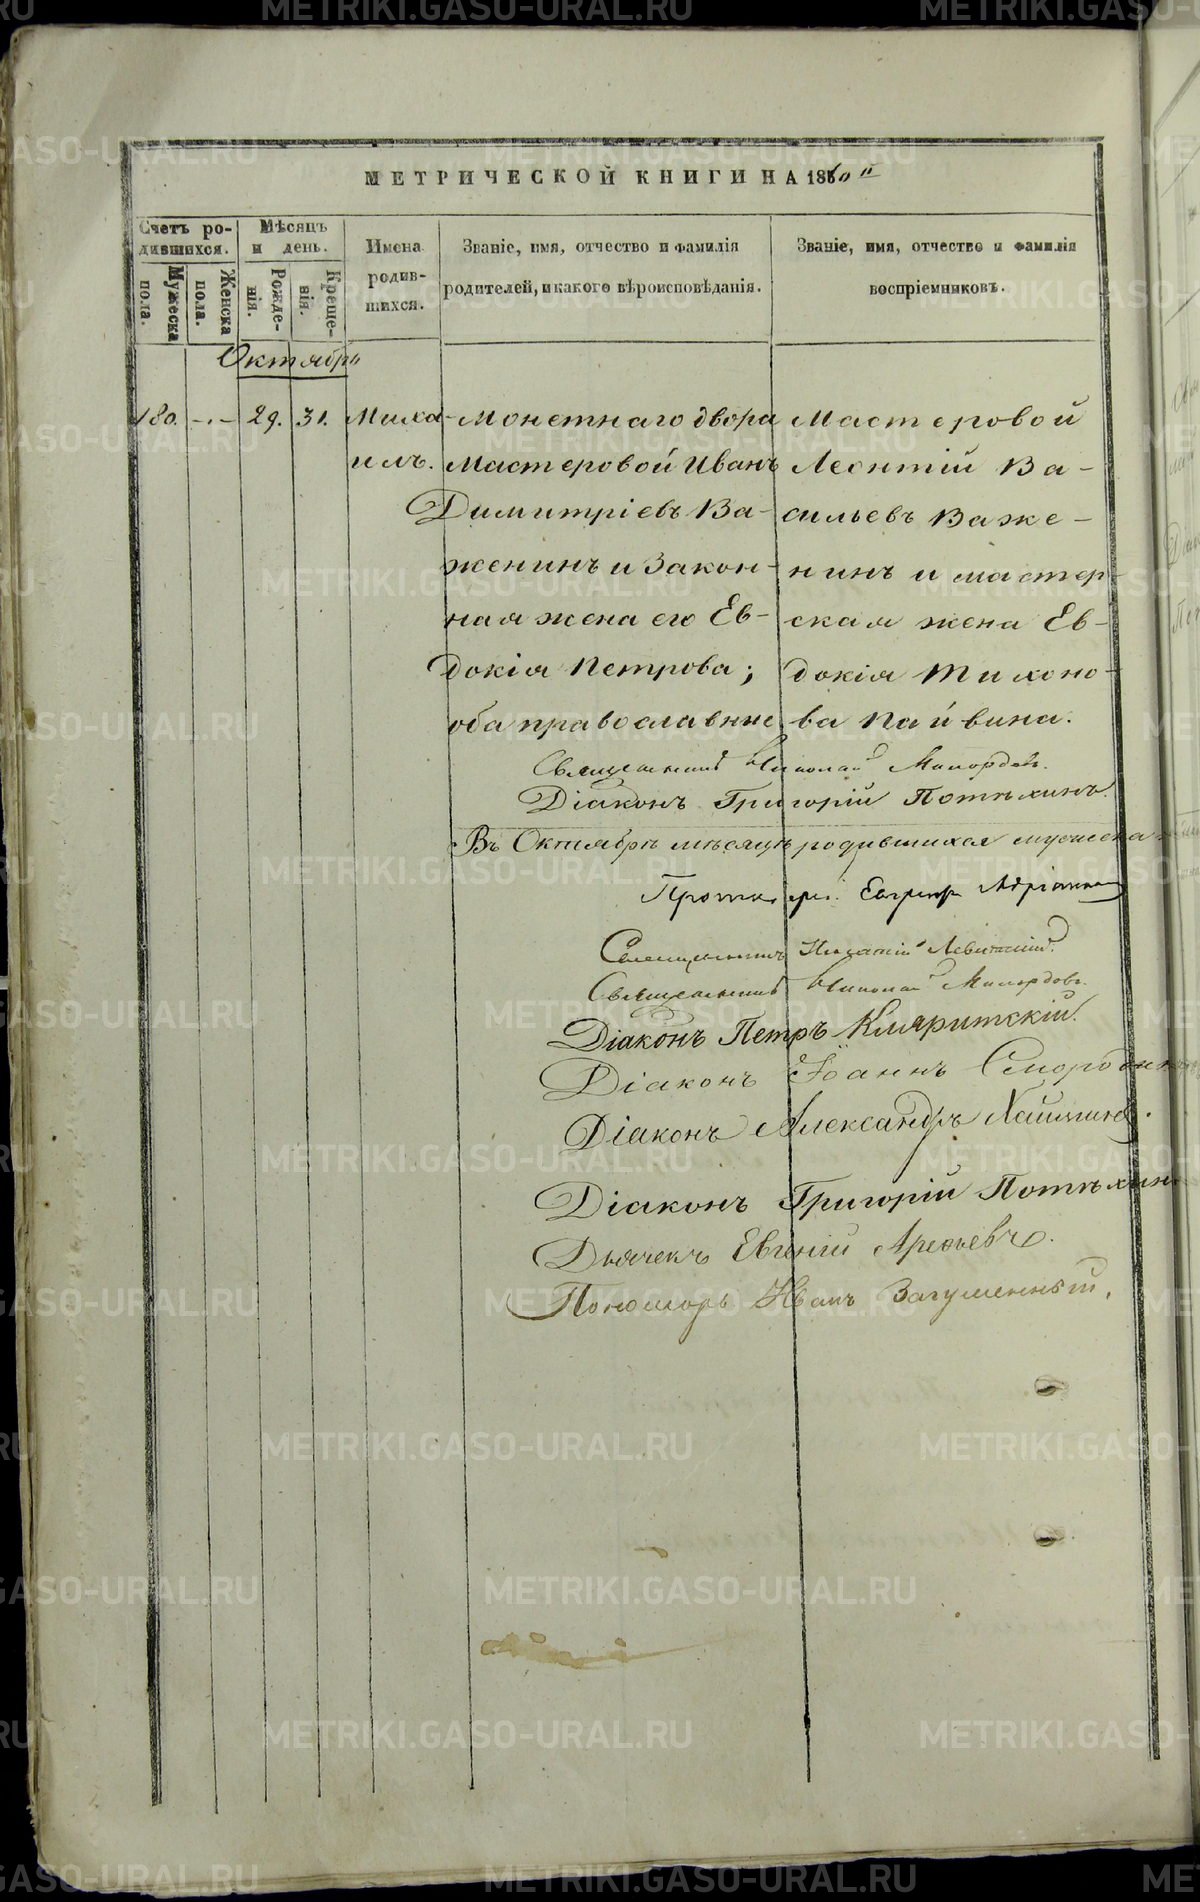 МЕТРИЧЕСКОЙ КНИГИ НА 1860
Счетъ ро-
дившихся.
Мужеска
пола.
Женска
пола.
Мѣсяцъ
и день.
Рожде-
нія.
Креще-
нія.
Имена
родив-
шихся.
Званіе, имя, отчество и фамилія
родителей, и какого вѣроисповѣданія.
Званіе, имя, отчество и фамилія
воспріемниковъ.
Октябрь
180. 29. 31.
Миха-
илъ.
Монетнаго двора
Мастеровой Иванъ
Димитріевъ Ва-
женинъ и закон-
ная жена его Ев-
докія Петрова;
оба православные
Мастеровой
Леонтій Ва-
сильевъ Важе-
нинъ и мастер-
ская жена Ев-
докія Тихоно-
ва Пайвина.
Священникъ Николай
Діаконъ Григорій Потѣхинъ.
Въ Октябрѣ мѣсяцѣ родившихся мужеска
Священникъ Левитскій
Священникъ Николай
Діаконъ Петръ
Діаконъ Іоаннъ
Діаконъ Александръ
Діаконъ Григорій Потѣхинъ
Дьячекъ Евгеній Арефьевъ.
Пономарь Иванъ Загуменный.
METRIKI.GASO-URAL.RU